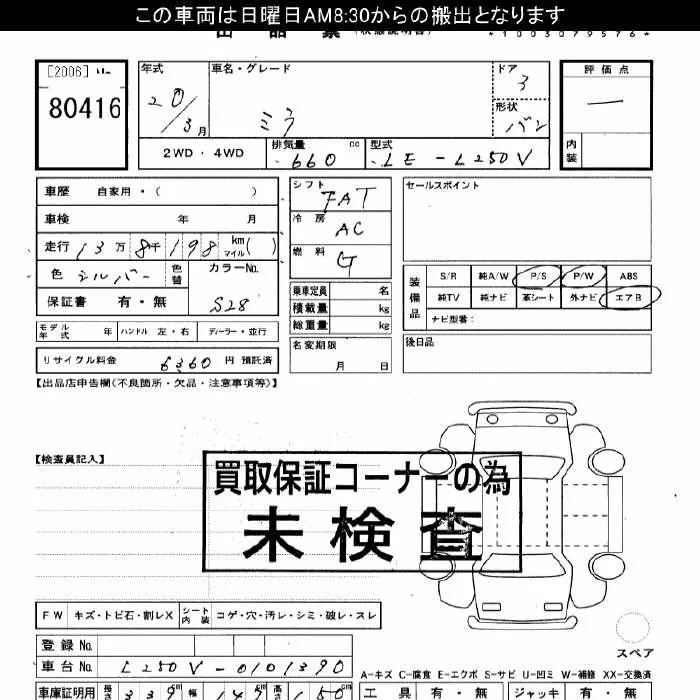 この車両は日曜日AM8:30からの搬出となります
出品票 (状態説明書) *1003079576*
[2006]
80416
年式
20/3月
車名・グレード
ミラ
ドア
3
形状
バン
評価点
一
内装
2WD・4WD
排気量 660 cc
型式 LE-L250V
車歴 自家用・( )
車検 年 月
走行 13万8千198 km マイル( )
色 シルバー 色替
カラーNo. S28
保証書 有・無
シフト FAT
冷房 AC
燃料 G
乗車定員 名
積載量 kg
総重量 kg
セールスポイント
装備品
S/R 純A/W P/S P/W ABS
純TV 純ナビ 革シート 外ナビ エアB
ナビ型番:
モデル年式 年 ハンドル 左・右 ディーラー・並行
名変期限 月 日
後日品
リサイクル料金 6360 円 預託済
【出品店申告欄(不良箇所・欠品・注意事項等)】
【検査員記入】
買取保証コーナーの為
未検査
FW キズ・トビ石・割レX シート内装 コゲ・穴・汚レ・シミ・破レ・スレ
スペア
登録No.
車台No. L250V-0101390
A-キズ C-腐食 E-エクボ S-サビ U-凹ミ W-補修 XX-交換済
車庫証明用 長さ 339cm 幅 147cm 高さ 150cm
工具 有・無 ジャッキ 有・無